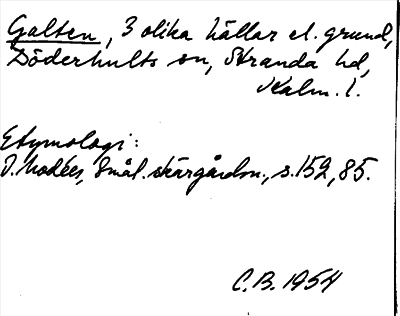 Galten, 3 olika hällar el. grund,
Döderhults sn, Stranda hd,
Kalm. l.
Etymologi:
I. Modéer, Smål. skärgårdsn., s. 152, 85.
C.B. 1954